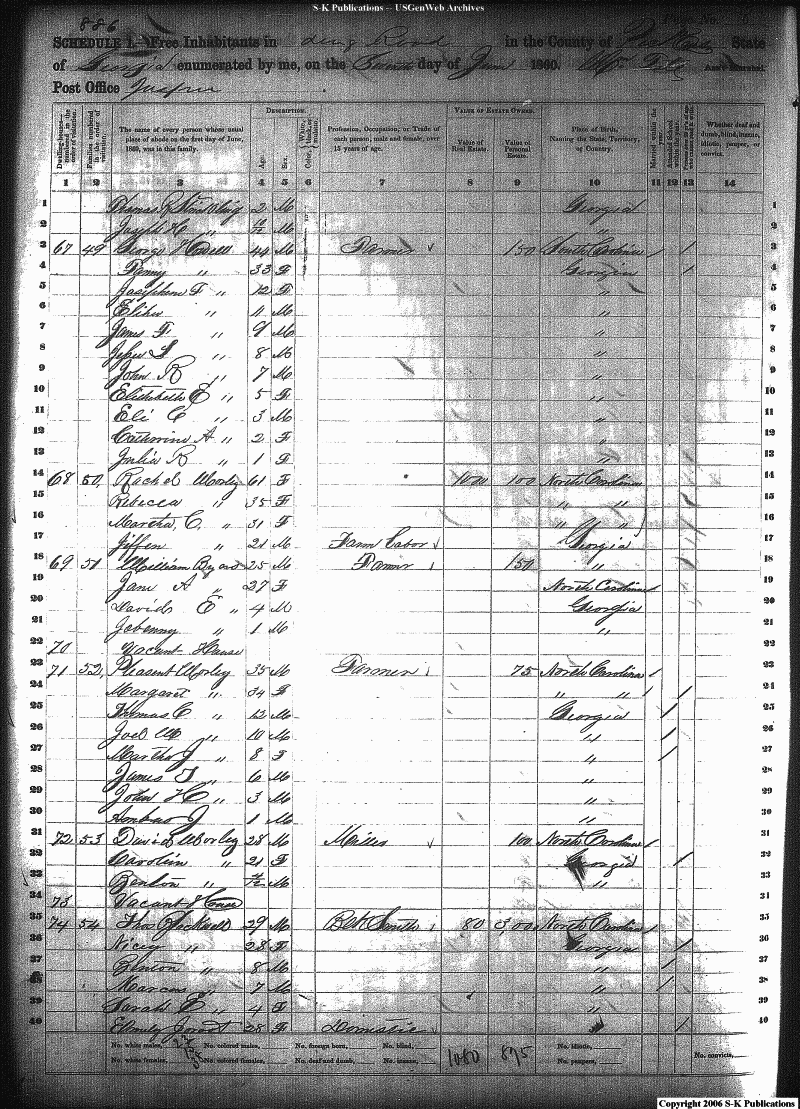 S-K Publications -- USGenWeb Archives
886
Page No.
SCHEDULE 1.—Free Inhabitants in Road in the County of State
of Georgia enumerated by me, on the day of June 1860. Ass't Marshal.
Post Office Jasper
DESCRIPTION. VALUE OF ESTATE OWNED.
Dwelling-houses— numbered in the order of visitation.
Families numbered in the order of visitation.
The name of every person whose usual place of abode on the first day of June, 1860, was in this family.
Age.
Sex.
Color, White, black, or mulatto.
Profession, Occupation, or Trade of each person, male and female, over 15 years of age.
Value of Real Estate.
Value of Personal Estate.
Place of Birth, Naming the State, Territory, or Country.
Married within the year.
Attended School within the year.
Whether deaf and dumb, blind, insane, idiotic, pauper, or convict.
1 2 3 4 5 6 7 8 9 10 11 12 13 14
1 Thomas 2 M Georgia 1
2 Joseph H " M " 2
3 67 49 George 44 M Farmer 150 North Carolina / / 3
4 Fanny " 33 F Georgia / 4
5 Josephine F " 12 F " 5
6 Elihu " 11 M " 6
7 James F " 9 M " 7
8 " 8 M " 8
9 John R " 7 M " 9
10 Elizabeth E " 5 F " 10
11 Eli C " 3 M " 11
12 Catharine A " 2 F " 12
13 Julia R " 1 F " 13
14 68 50 Rachel Worley 61 F 1000 100 North Carolina 14
15 Rebecca " 35 F " " 15
16 Martha C. " 31 F " " 16
17 " 21 M Farm Labor Georgia 17
18 69 51 William Byard 25 M Farmer 150 " 18
19 Jane A " 27 F North Carolina 19
20 David E " 4 M Georgia 20
21 " 1 M " 21
22 70 Vacant House 22
23 71 52 Pleasent Worley 35 M Farmer 75 North Carolina / 23
24 Margaret " 34 F " " / / 24
25 Thomas C " 12 M Georgia / 25
26 Joel M " 10 M " / 26
27 Martha J " 8 F " / 27
28 James T " 6 M " 28
29 John H " 3 M " 29
30 J " 1 M " 30
31 72 53 David Worley 28 M Miller 100 North Carolina / 31
32 Carolin " 21 F Georgia / 32
33 Benton " M " 33
34 73 Vacant House 34
35 74 54 Thos 29 M Blk Smith 80 300 North Carolina / 35
36 Nicey " 28 F Georgia / 36
37 Benton " 8 M " / 37
38 Marcus " 7 M " / 38
39 Sarah E " 4 F " 39
40 Emily 28 F Domestic " / 40
No. white males, No. colored males, No. foreign born, No. blind, No. idiotic,
No. white females, No. colored females, No. deaf and dumb, No. insane, 1080 875 No. paupers, No. convicts,
Copyright 2006 S-K Publications